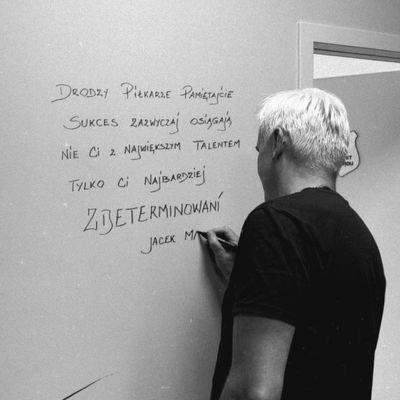 Drodzy Piłkarze Pamiętajcie
Sukces zazwyczaj osiągają
nie Ci z największym Talentem
tylko Ci najbardziej
ZDETERMINOWANI
JACEK M